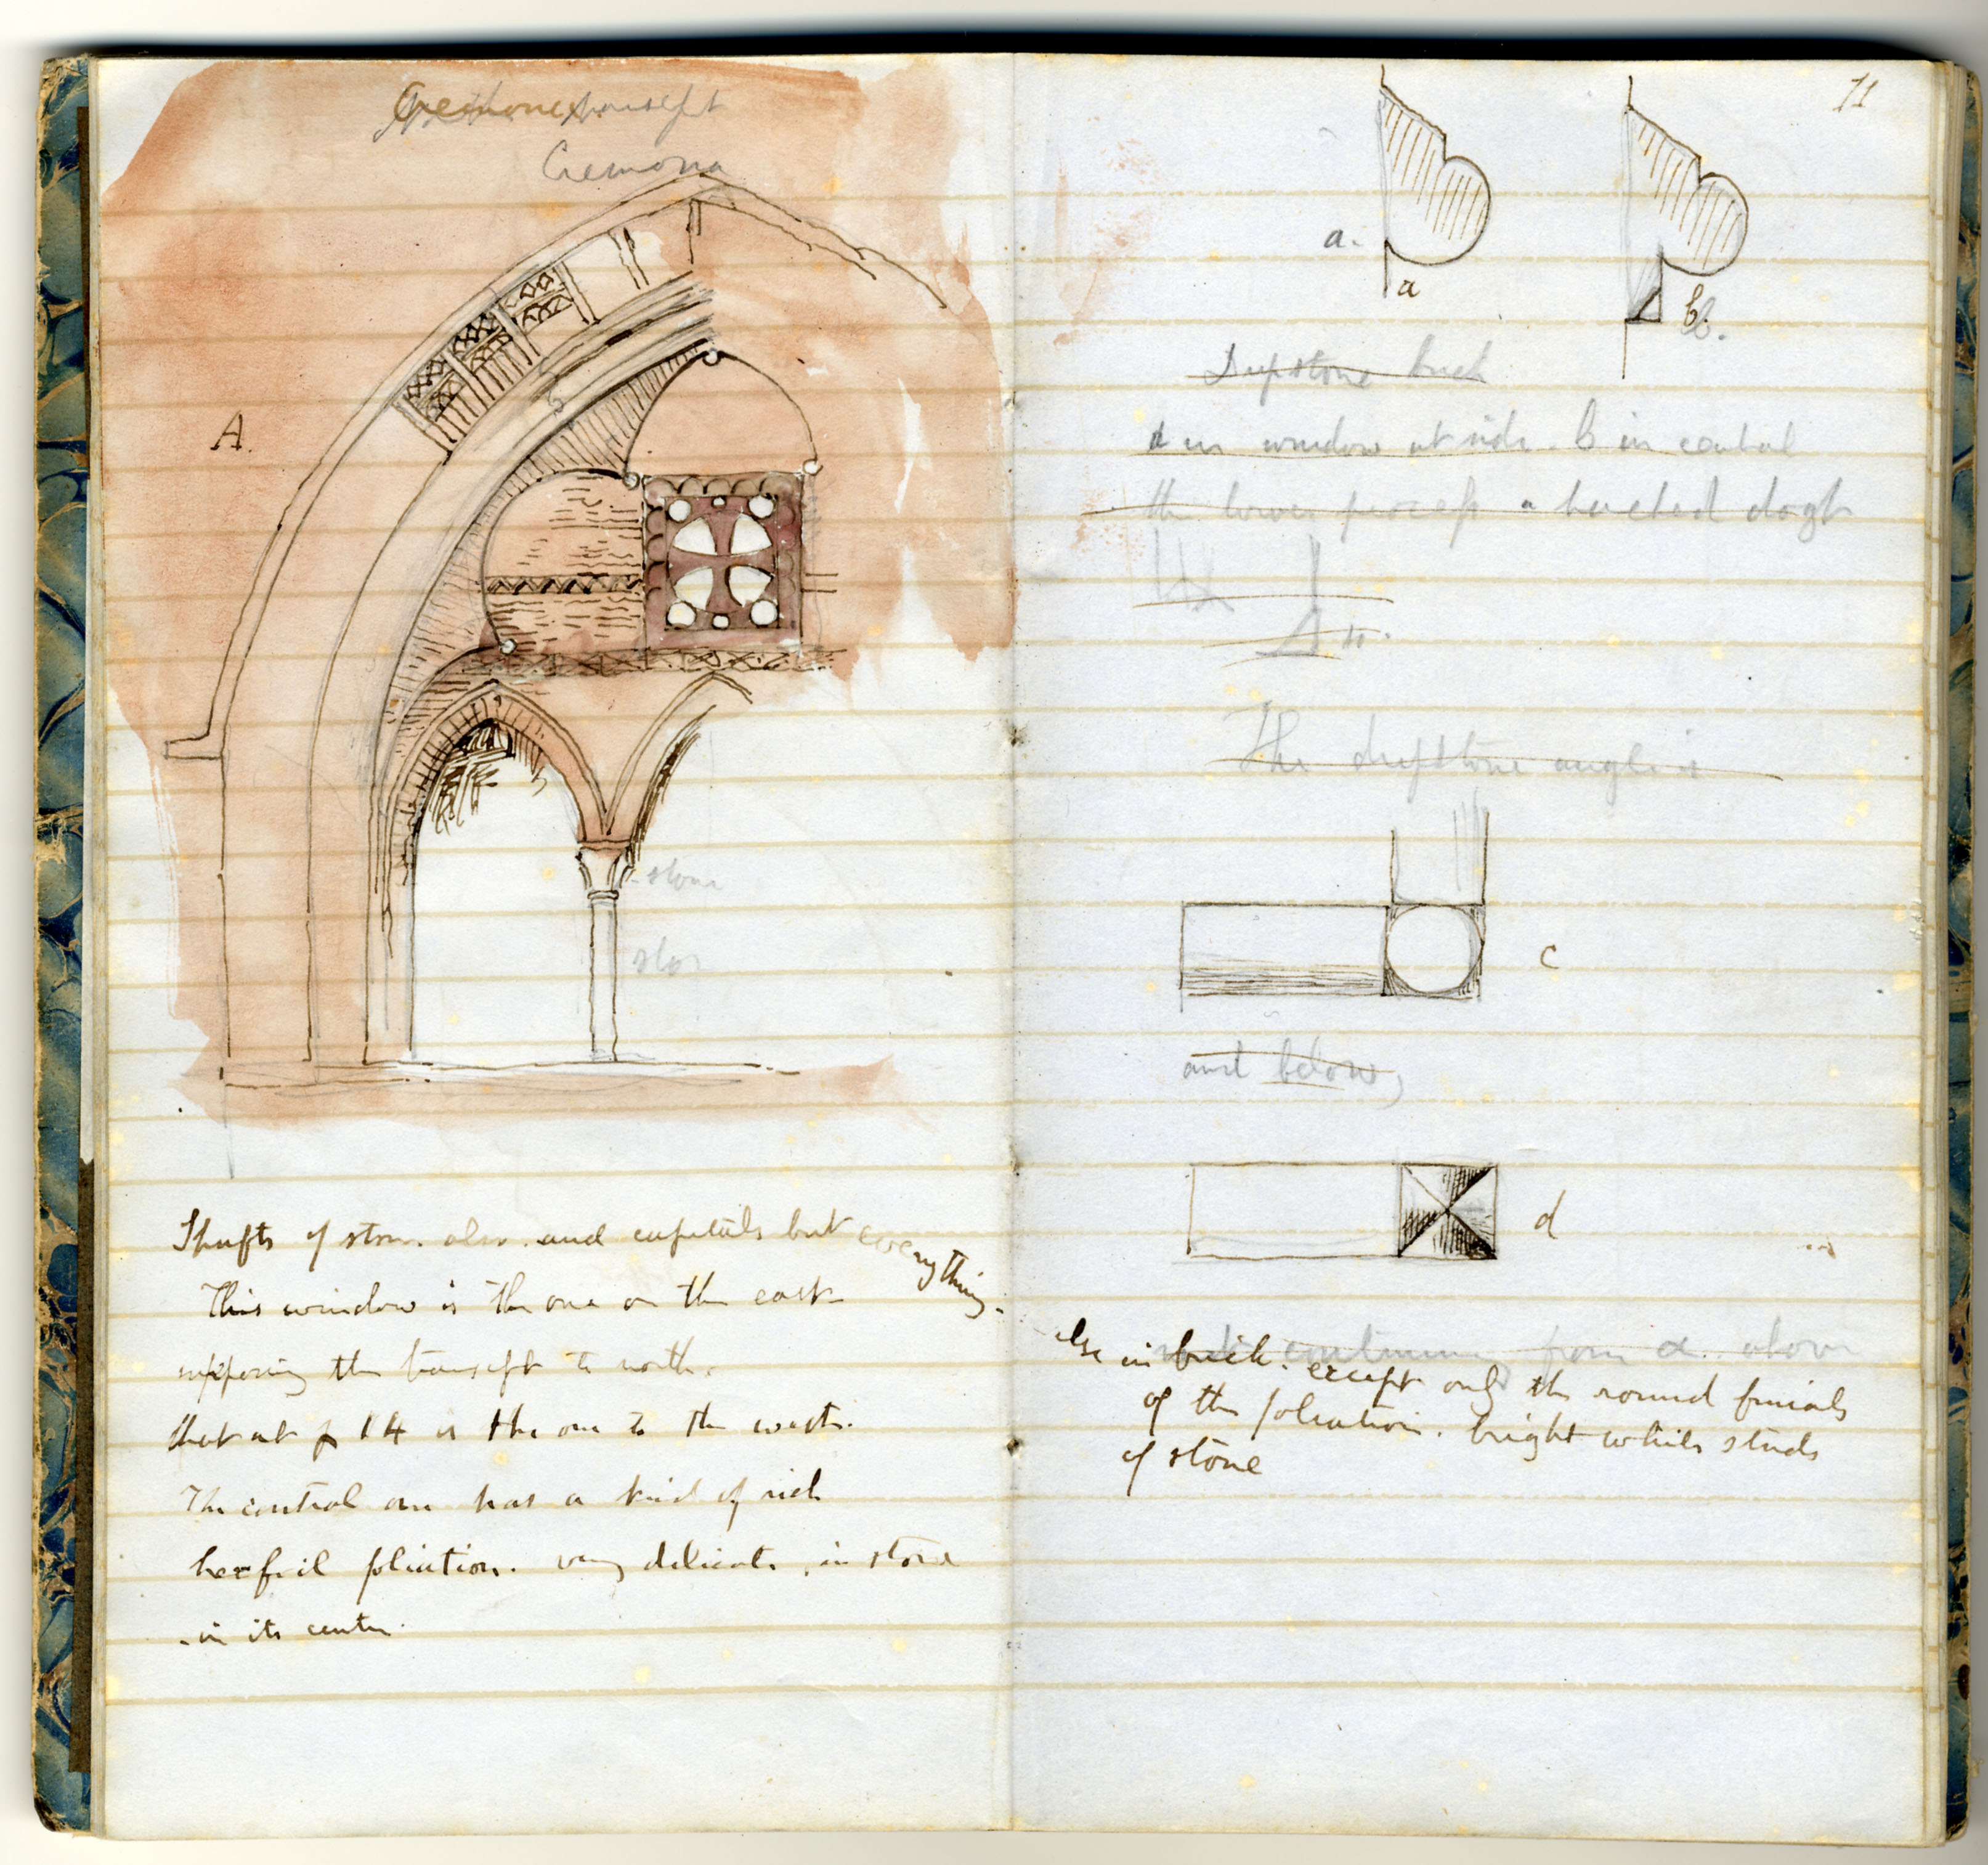 Cremona transept
Cremona
A.
stone
ston
Shafts of stone also. and capitals but everything.
This window is the one on the east
opposing the transept to north.
that at p 14 is the one to the west.
The central one has a kind of rich
hexfoil foliation. very delicate, in stone
- in its centre.
11
a.
a
b.
b.
Dripstone brick
a in window at side. b in central
the lower process a hatched dogt
The dripstone angle is
c
and below,
d
continuing from a. above
else in brick. except only the round finials
of the foliation. bright white studs
of stone